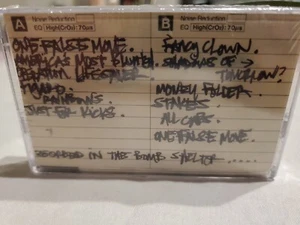 A Noise Reduction
EQ High(CrO2) 70μs
ONE FALSE MOVE.
AMERICA'S MOST BLUNTED
FIGARO.
RAINBOWS.
JUST FOR KICKS.
B Noise Reduction
EQ High(CrO2) 70μs
FANCY CLOWN.
SHADOWS OF
TOMORROW?
MONEY FOLDER.
ALL CAPS.
ONE FALSE MOVE.
RECORDED IN THE BOMB SHELTER.....